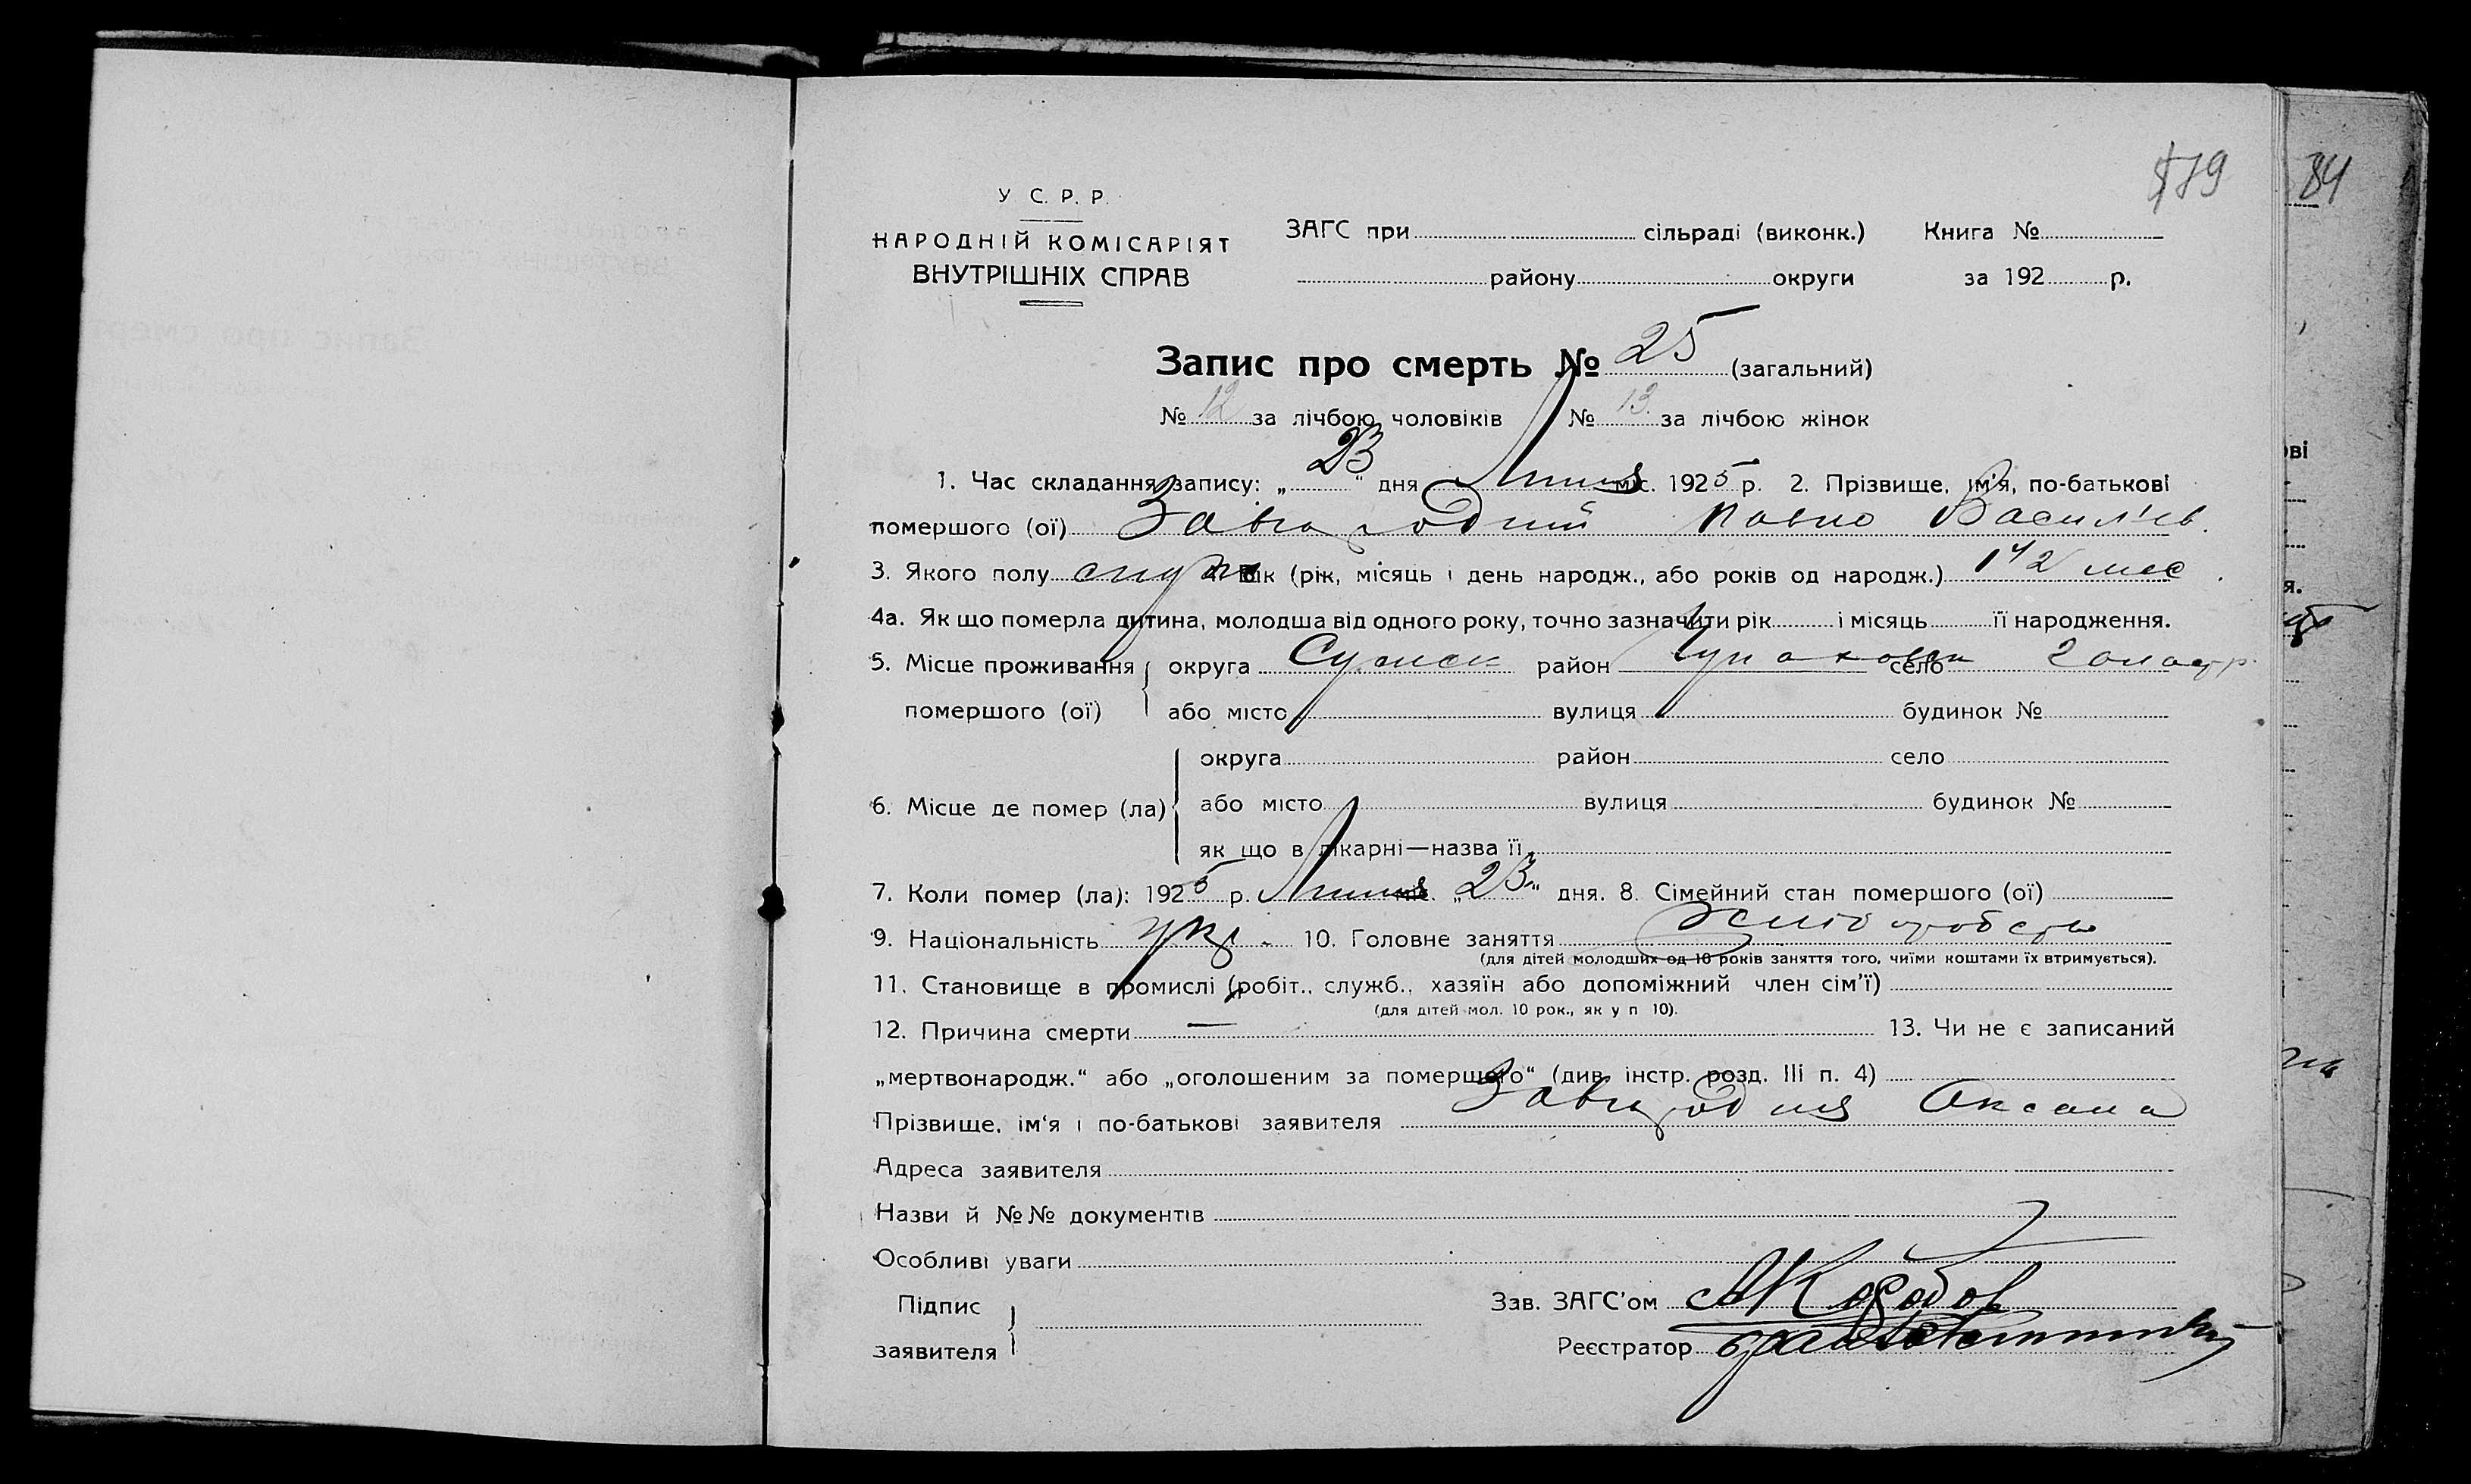 179 84
У С. Р. Р.
НАРОДНІЙ КОМІСАРІЯТ ЗАГС при сільраді (виконк.) Книга №
ВНУТРІШНІХ СПРАВ району округи за 192 р.
Запис про смерть № 25 (загальний)
№ 12 за лічбою чоловіків № 13 за лічбою жінок
1. Час складання запису: „23“ дня Липня міс. 1925 р. 2. Прізвище, ім'я, по-батькові
помершого (ої) Завгородній Павло Василів.
3. Якого полу Вік (рік, місяць і день народж., або років од народж.) 1 1/2 мес.
4а. Як що померла дитина, молодша від одного року, точно зазначити рік і місяць її народження.
5. Місце проживання округа Сумск район село
помершого (ої) або місто вулиця будинок №
округа район село
6. Місце де помер (ла) або місто вулиця будинок №
як що в лікарні—назва її
7. Коли помер (ла): 1925 р. Липня міс. „23“ дня. 8. Сімейний стан помершого (ої)
9. Національність укр. 10. Головне заняття хліборобство
(для дітей молодших од 10 років заняття того, чиїми коштами їх втримується).
11. Становище в промислі (робіт., служб., хазяїн або допоміжний член сім'ї)
(для дітей мол. 10 рок., як у п 10).
12. Причина смерти — 13. Чи не є записаний
„мертвонародж.“ або „оголошеним за помершого“ (див. інстр. розд. III п. 4)
Прізвище, ім'я і по-батькові заявителя Завгородня Оксана
Адреса заявителя
Назви й №№ документів
Особливі уваги
Підпис Зав. ЗАГС'ом
заявителя Реєстратор